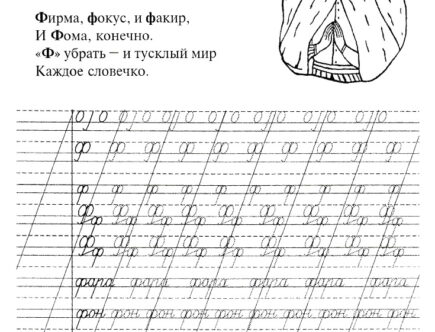 Фирма, фокус, и факир,
И Фома, конечно.
«Ф» убрать — и тусклый мир
Каждое словечко.
ф ф ф ф ф ф ф ф ф
ф ф ф ф ф ф ф ф ф
фара фара фара фара фара фара
фон фон фон фон фон фон фон фон фон фон